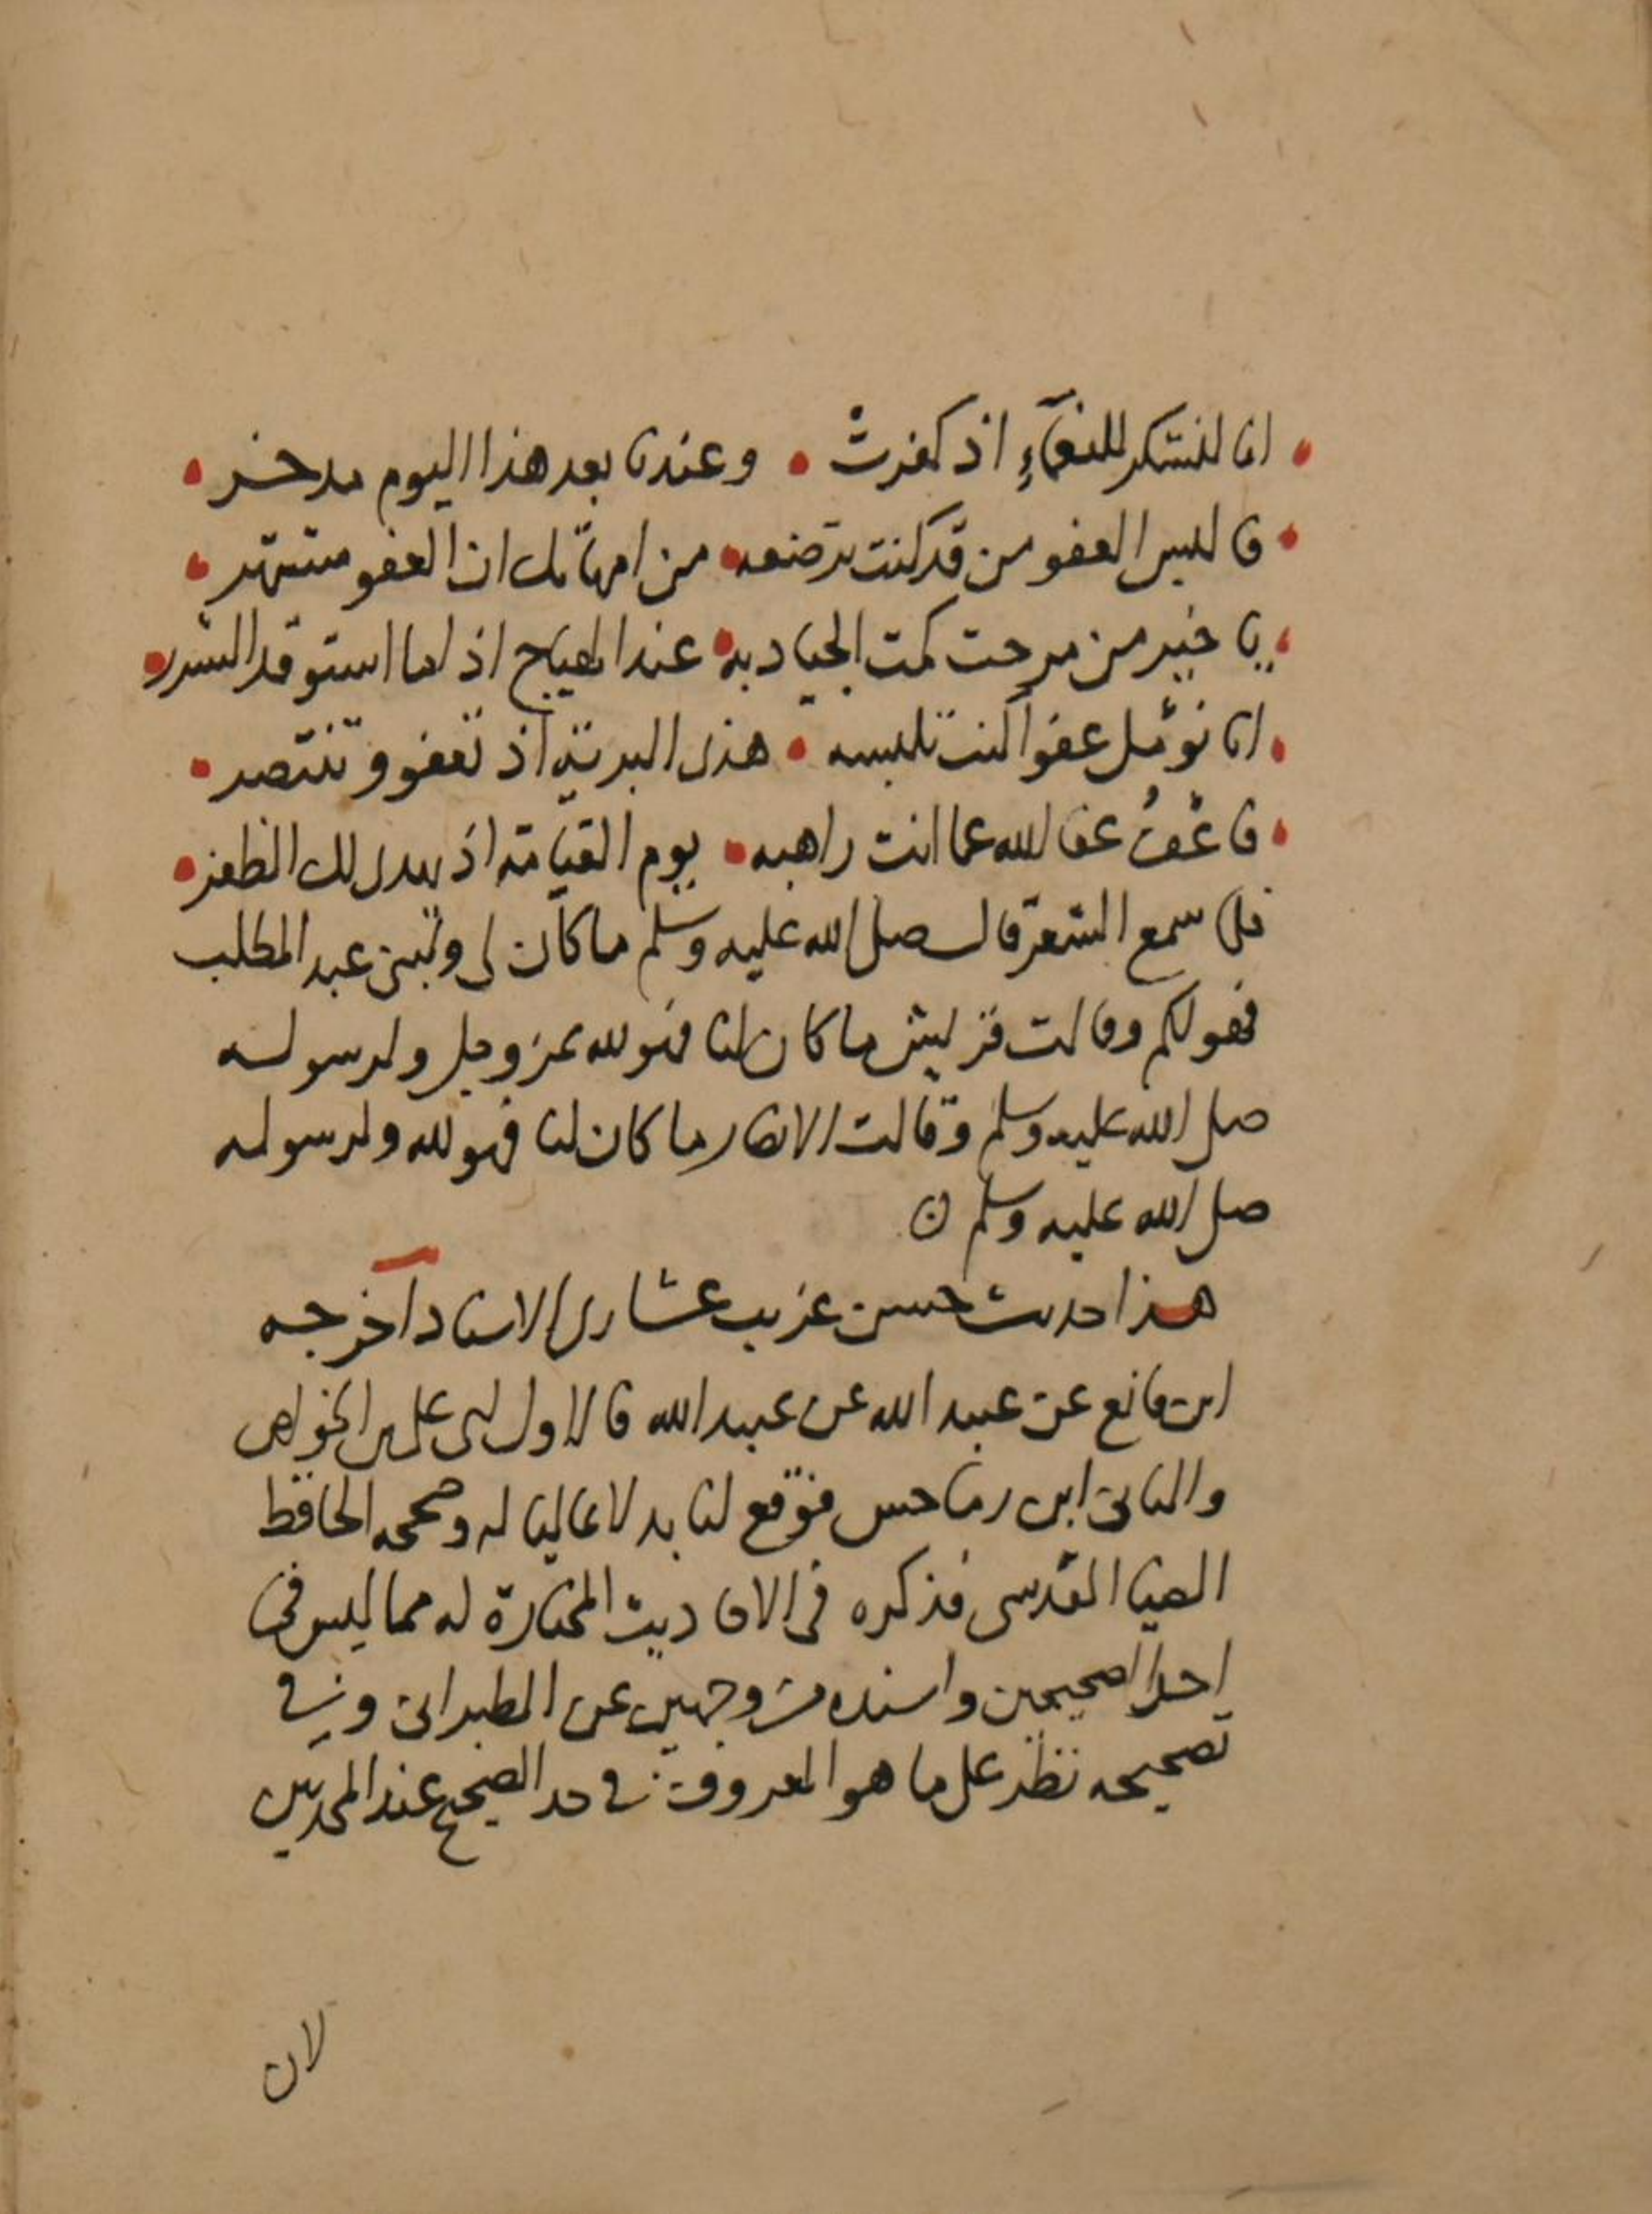 • انا لنشكر للنعمآءِ اذ كفرت • وعندنا بعد هذا اليوم مدخر •
• فالبس العفو من قد كنت ترضعه • من امهاتك ان العفو مشتهر •
• يا خير من مرحت كمت الجياد به • عند الهياج اذا ما استوقد الشرر •
• انا نؤمل عفوا منك تلبسه • هذى البرية اذ تعفو وتنتصر •
• فاعْفُ عفا الله عما انت راهبه • يوم القيامة اذ يهدى لك الظفر •
فلما سمع الشعر قال صلى الله عليه وسلم ما كان لى ولبنى عبد المطلب
فهو لكم وقالت قريش ما كان لنا فهو لله عز وجل ولرسوله
صلى الله عليه وسلم وقالت الانصار ما كان لنا فهو لله ولرسوله
صلى الله عليه وسلم ن
هذا حديث حسن غريب عشارى الاسناد اخرجه
ابن قانع عن عبيد الله عن عبيد الله فالاول ابن على الخواص
والثانى ابن رماحس فوقع لنا بدلا عاليا له وصححه الحافظ
الضيا المقدسى فذكره فى الاحاديث المختارة له مما ليس فى
احد الصحيحين واسنده من وجهين عن الطبرانى وفى
تصحيحه نظر على ما هو المعروف فى حد الصحيح عند المحدثين
لان